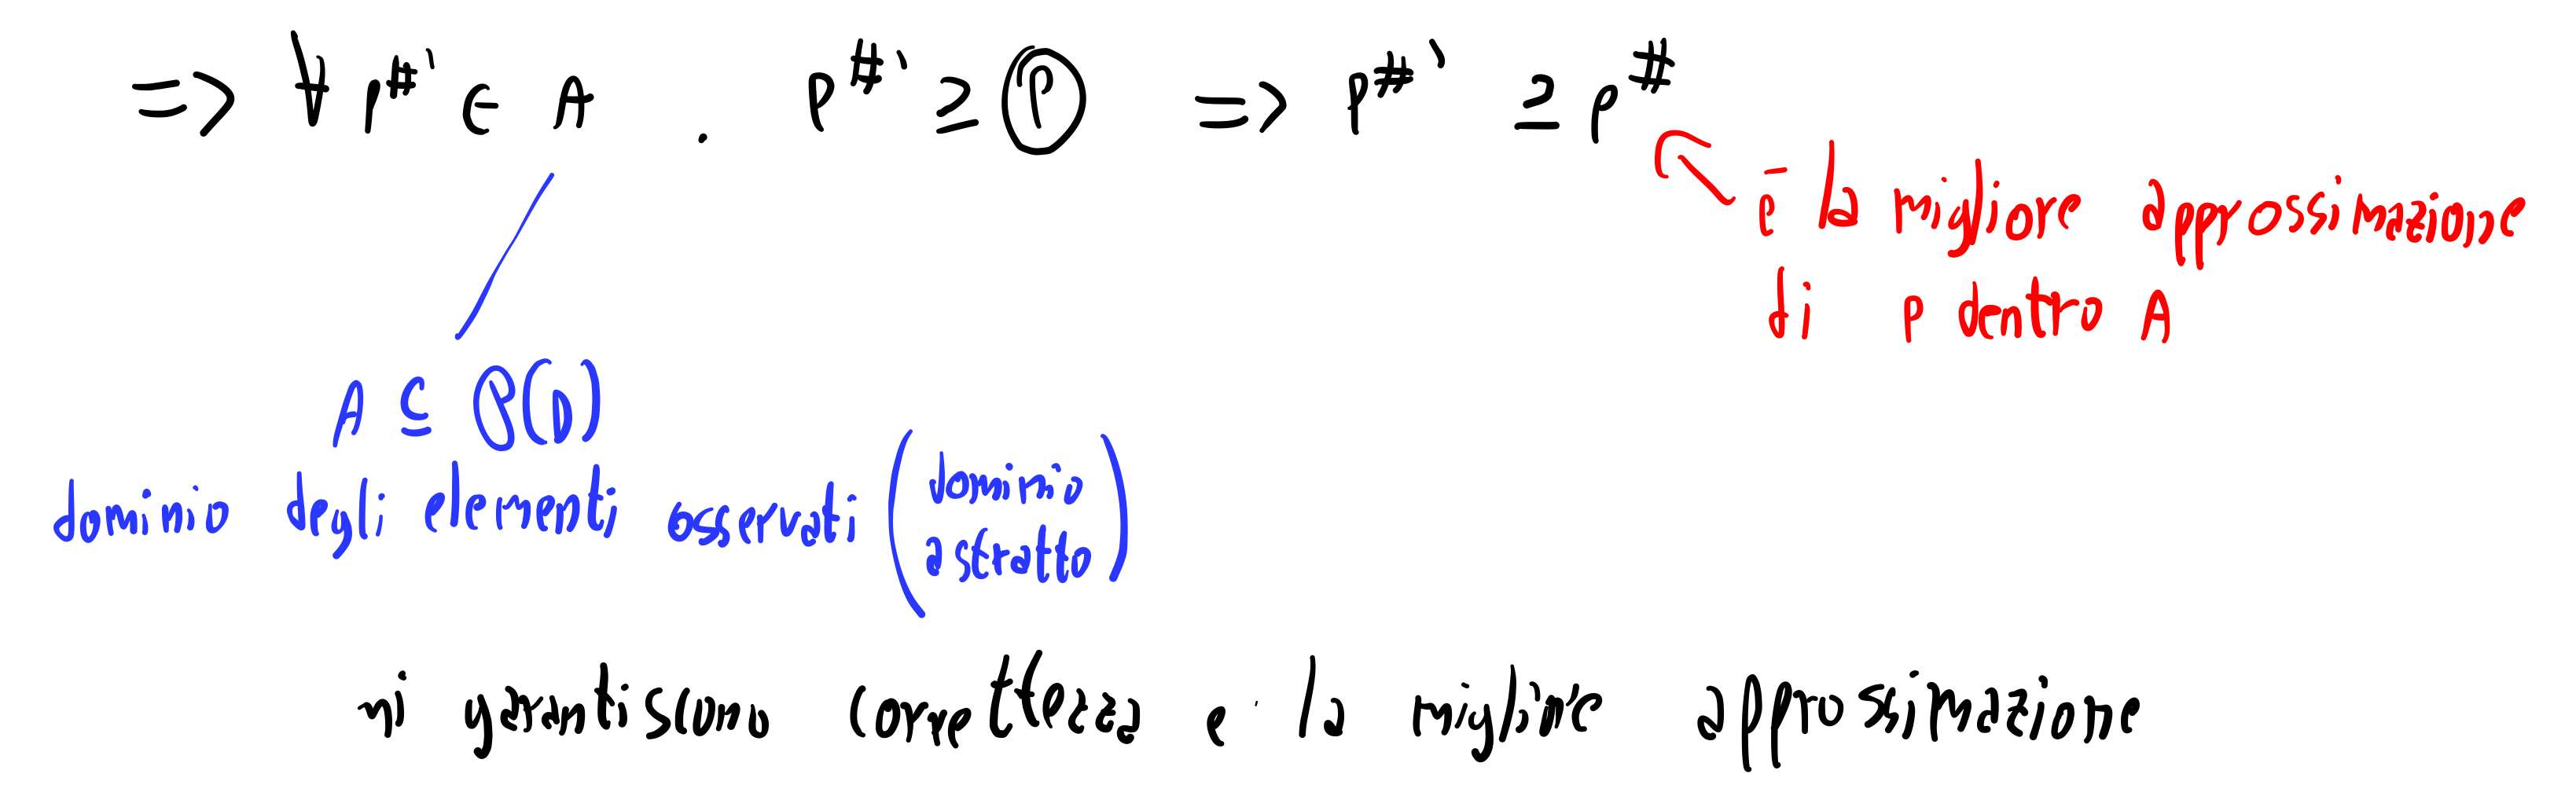 => ∀ p#' ∈ A . p#' ≥ P => p#' ≥ p#
è la migliore approssimazione
di P dentro A
A ⊆ ℘(D)
dominio degli elementi osservati (dominio
astratto)
mi garantiscono correttezza e la migliore approssimazione